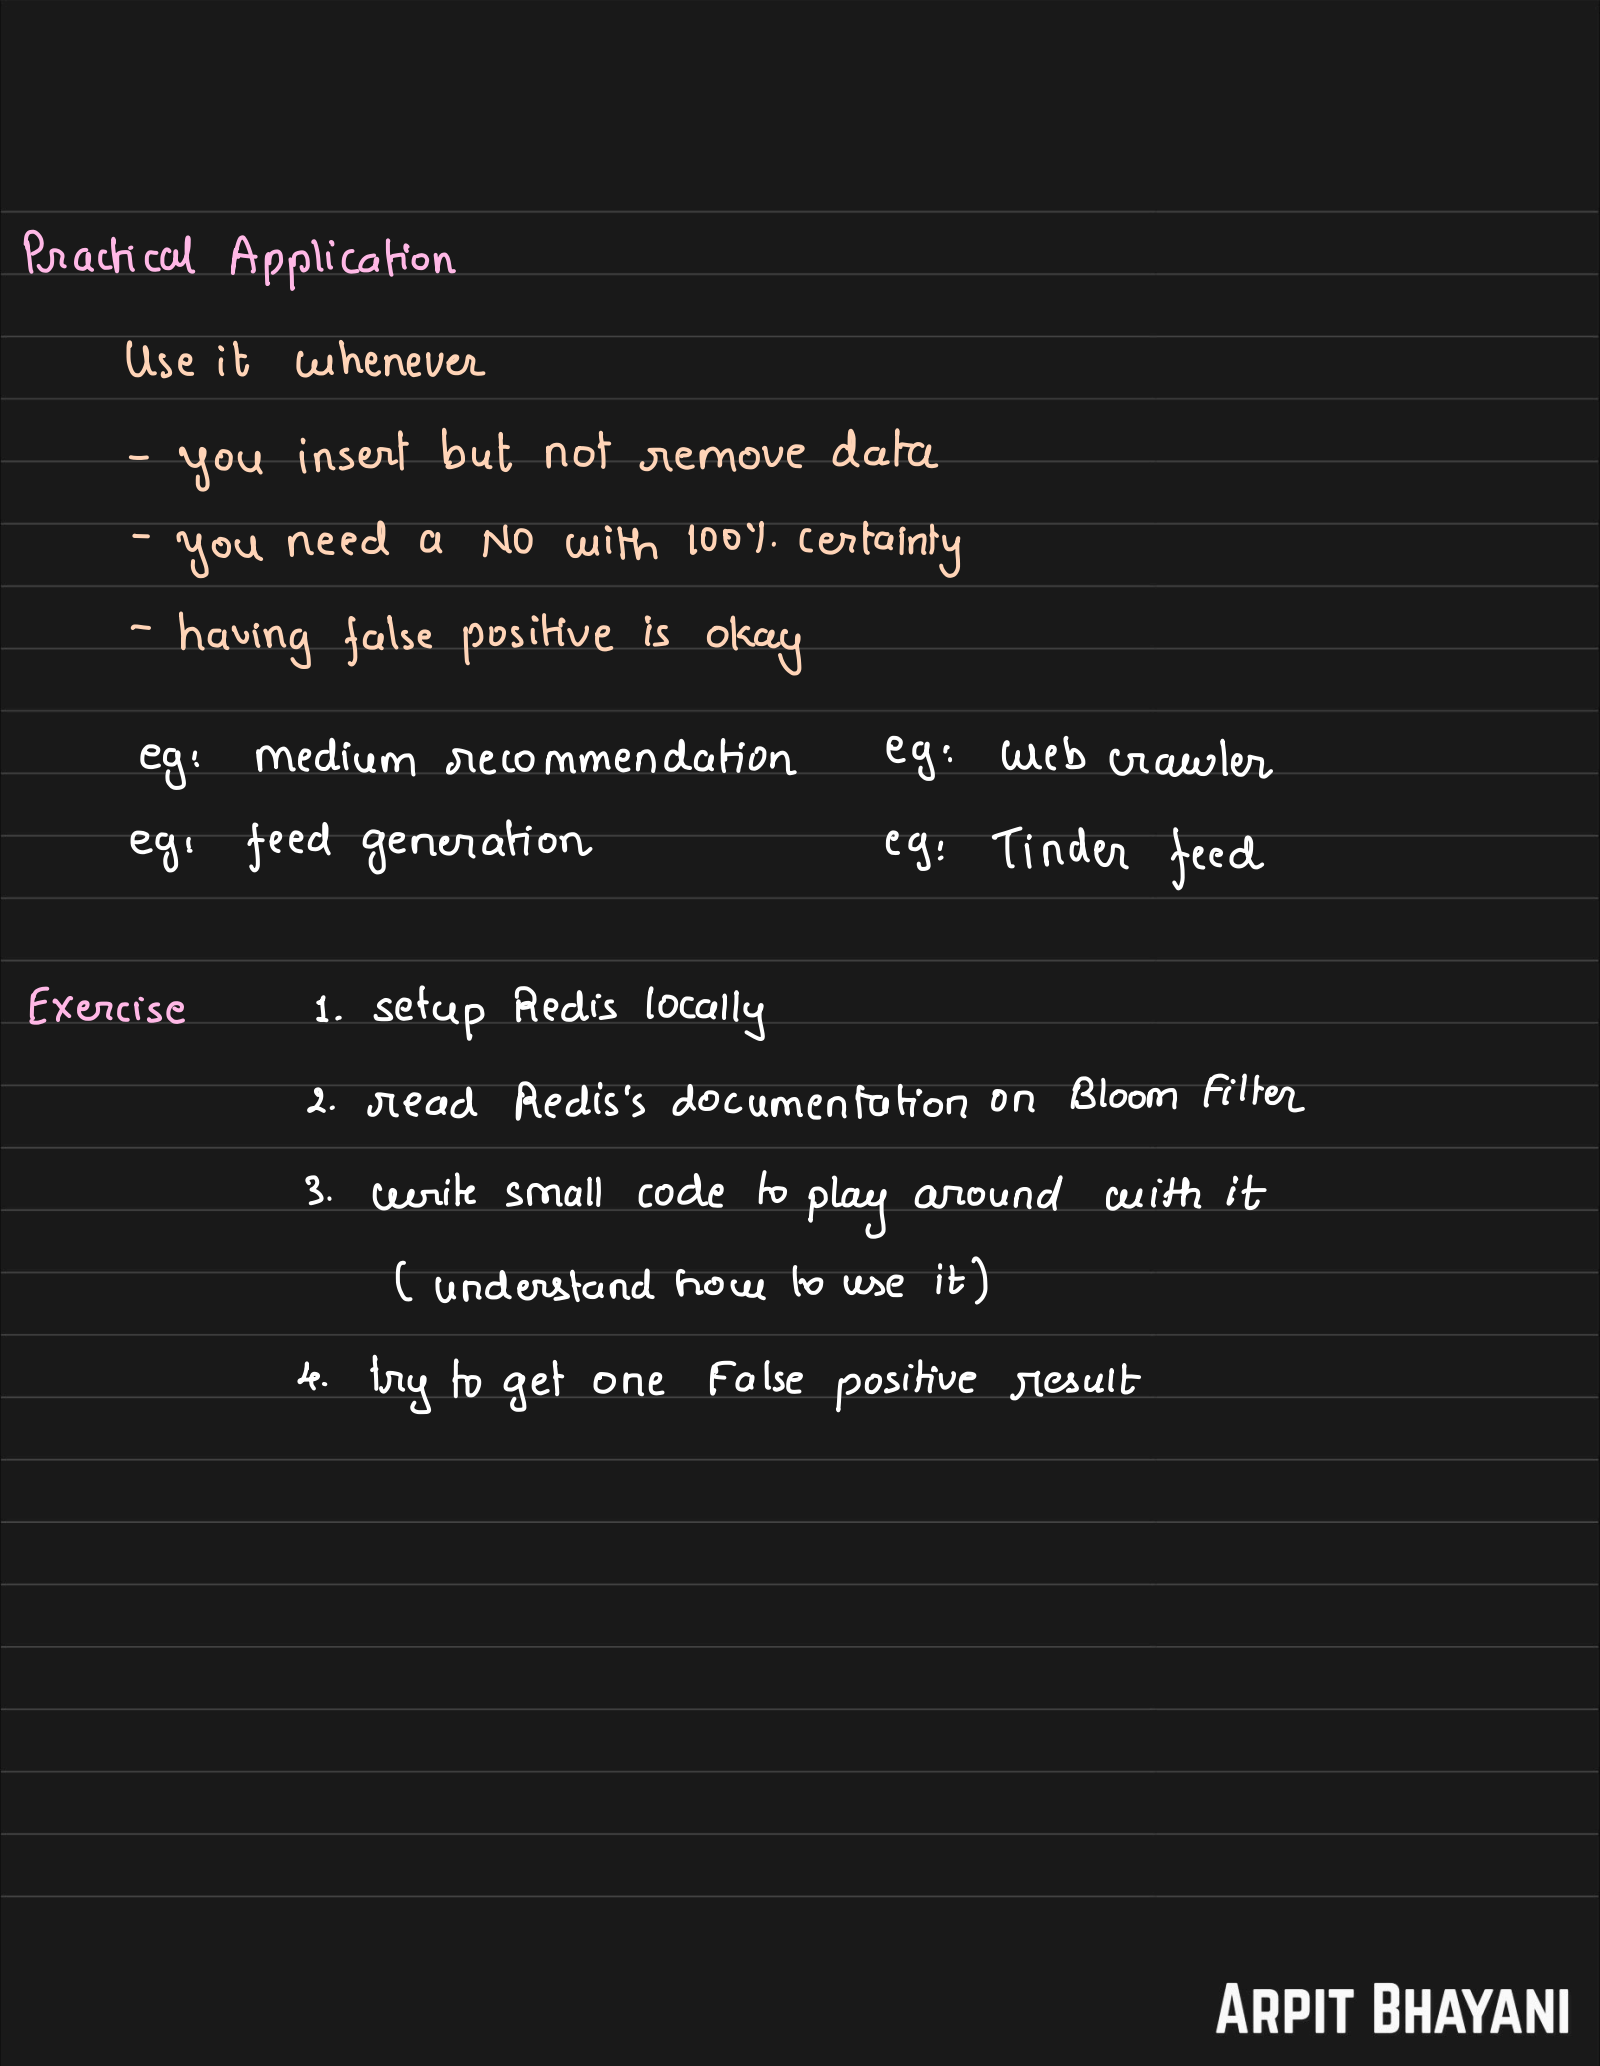 Practical Application
Use it whenever
- you insert but not remove data
- you need a NO with 100% certainty
- having false positive is okay
eg: medium recommendation eg: web crawler
eg: feed generation eg: Tinder feed
Exercise 1. setup Redis locally
2. read Redis's documentation on Bloom Filter
3. write small code to play around with it
(understand how to use it)
4. try to get one False positive result
ARPIT BHAYANI